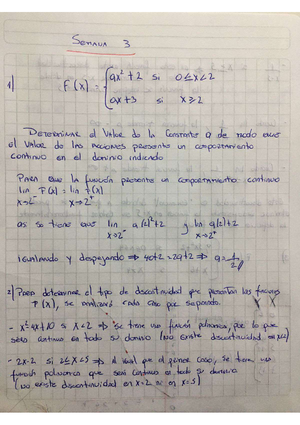 SEMANA 3
1) F(x) = { ax² + 2 si 0 ≤ x < 2
ax + 3 si x ≥ 2
DETERMINAR el valor de la constante a de modo que
el valor de las acciones presente un comportamiento
continuo en el dominio indicado
PARA que la función presente un comportamiento continuo
lim F(x) = lim F(x)
x→2⁻ x→2⁺
así se tiene que lim a(2)²+2 y lim a(2)+2
x→2⁻ x→2⁺
igualando y despejando ⇒ 4a+2 = 2a+2 ⇒ a = 1/2
2) Para determinar el tipo de discontinuidad que presentan las
F(x), se analizará cada caso por separado.
- x²-4x+10 si x<2 ⇒ se tiene una función polinomica, por lo que
será continua en todo su dominio (No existe discontinuidad en x=2)
- 2x-2 si 2≤x<5 ⇒ al igual que el primer caso, se tiene una
función polinomica que será continua en todo su dominio
(No existe discontinuidad en x=2 ni en x=5)